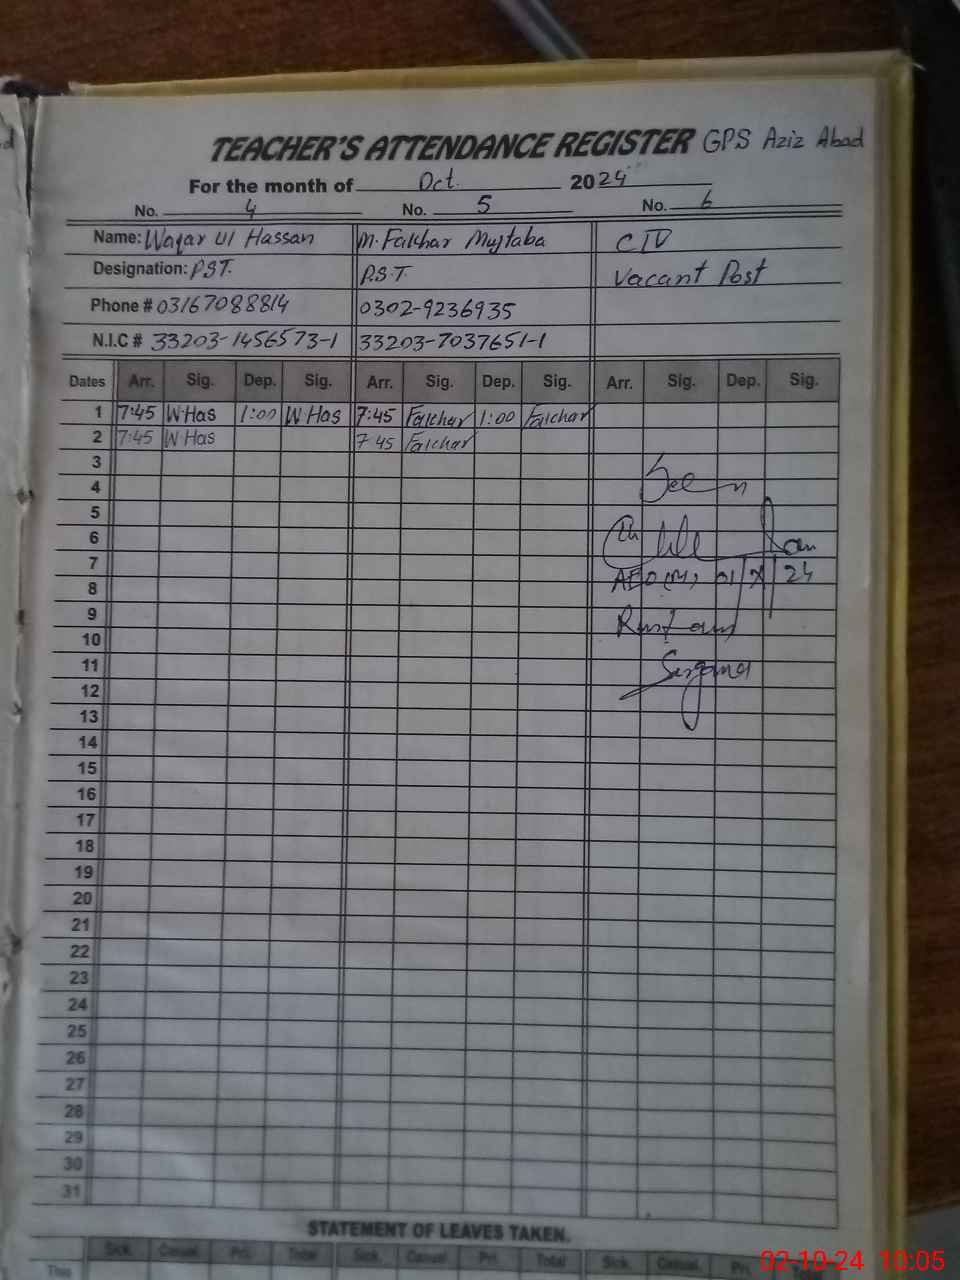 TEACHER'S ATTENDANCE REGISTER GPS Aziz Abad
For the month of Oct. 2024
No. 4 No. 5 No. 6
Name: Waqar Ul Hassan M. Fakhar Mujtaba CIV
Designation: PST. P.S.T Vacant Post
Phone # 03167088814 0302-9236935
N.I.C # 33203-1456573-1 33203-7037651-1
Dates Arr. Sig. Dep. Sig. Arr. Sig. Dep. Sig. Arr. Sig. Dep. Sig.
1 7:45 W Has 1:00 W Has 7:45 Fakhar 1:00 Fakhar
2 7:45 W Has 7:45 Fakhar
3
4 Seen
5
6
7
8 AEO (M)
9
10
11
12
13
14
15
16
17
18
19
20
21
22
23
24
25
26
27
28
29
30
31
STATEMENT OF LEAVES TAKEN.
Sick. Casual. Pri. Total Sick. Casual Pri. Total Sick. Casual. Pri.
This
02-10-24 10:05